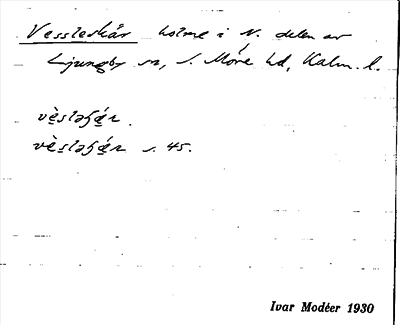 Vessleskär holme i N. delen av
Ljungby sn, S. Möre hd, Kalm. l.
s. 45.
Ivar Modéer 1930